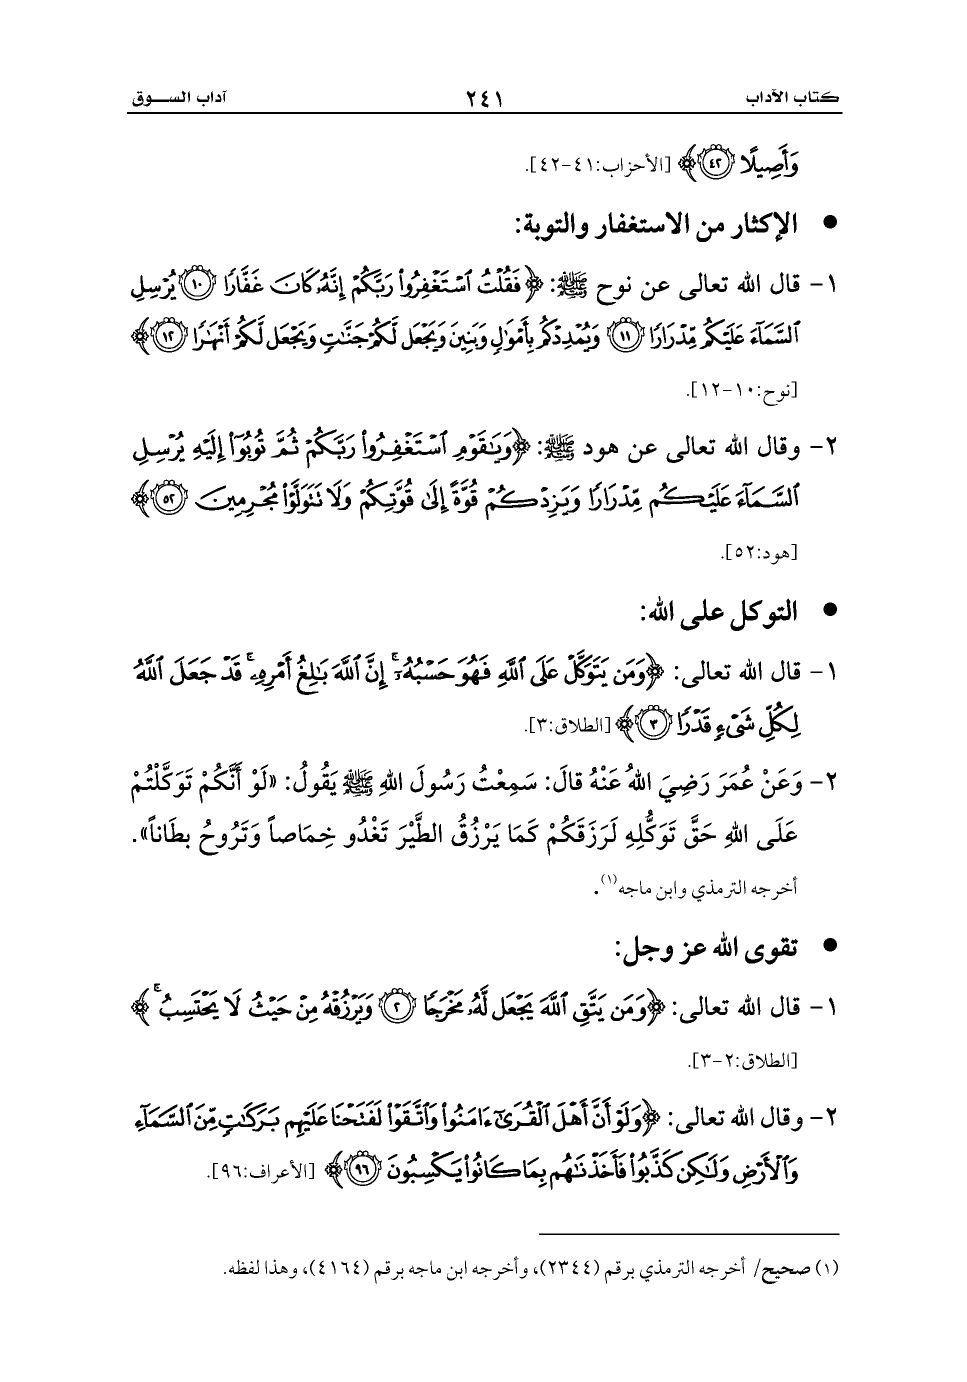 كتاب الآداب ٢٤١ آداب الســـوق
وَأَصِيلًا ﴿٤٢﴾ ﴾ [الأحزاب:٤١-٤٢].
● الإكثار من الاستغفار والتوبة:
١- قال الله تعالى عن نوح ﷺ: ﴿ فَقُلْتُ ٱسْتَغْفِرُوا۟ رَبَّكُمْ إِنَّهُۥ كَانَ غَفَّارًا ﴿١٠﴾ يُرْسِلِ
ٱلسَّمَآءَ عَلَيْكُم مِّدْرَارًا ﴿١١﴾ وَيُمْدِدْكُم بِأَمْوَٰلٍ وَبَنِينَ وَيَجْعَل لَّكُمْ جَنَّـٰتٍ وَيَجْعَل لَّكُمْ أَنْهَـٰرًا ﴿١٢﴾ ﴾
[نوح:١٠-١٢].
٢- وقال الله تعالى عن هود ﷺ: ﴿ وَيَـٰقَوْمِ ٱسْتَغْفِرُوا۟ رَبَّكُمْ ثُمَّ تُوبُوٓا۟ إِلَيْهِ يُرْسِلِ
ٱلسَّمَآءَ عَلَيْكُم مِّدْرَارًا وَيَزِدْكُمْ قُوَّةً إِلَىٰ قُوَّتِكُمْ وَلَا تَتَوَلَّوْا۟ مُجْرِمِينَ ﴿٥٢﴾ ﴾
[هود:٥٢].
● التوكل على الله:
١- قال الله تعالى: ﴿ وَمَن يَتَوَكَّلْ عَلَى ٱللَّهِ فَهُوَ حَسْبُهُۥٓ ۚ إِنَّ ٱللَّهَ بَـٰلِغُ أَمْرِهِۦ ۚ قَدْ جَعَلَ ٱللَّهُ
لِكُلِّ شَىْءٍ قَدْرًا ﴿٣﴾ ﴾ [الطلاق:٣].
٢- وَعَنْ عُمَرَ رَضِيَ اللهُ عَنْهُ قالَ: سَمِعْتُ رَسُولَ اللهِ ﷺ يَقُولُ: «لَوْ أَنَّكُمْ تَوَكَّلْتُمْ
عَلَى اللهِ حَقَّ تَوَكُّلِهِ لَرَزَقَكُمْ كَمَا يَرْزُقُ الطَّيْرَ تَغْدُو خِمَاصاً وَتَرُوحُ بِطَاناً».
أخرجه الترمذي وابن ماجه(١).
● تقوى الله عز وجل:
١- قال الله تعالى: ﴿ وَمَن يَتَّقِ ٱللَّهَ يَجْعَل لَّهُۥ مَخْرَجًا ﴿٢﴾ وَيَرْزُقْهُ مِنْ حَيْثُ لَا يَحْتَسِبُ ۚ ﴾
[الطلاق:٢-٣].
٢- وقال الله تعالى: ﴿ وَلَوْ أَنَّ أَهْلَ ٱلْقُرَىٰٓ ءَامَنُوا۟ وَٱتَّقَوْا۟ لَفَتَحْنَا عَلَيْهِم بَرَكَـٰتٍ مِّنَ ٱلسَّمَآءِ
وَٱلْأَرْضِ وَلَـٰكِن كَذَّبُوا۟ فَأَخَذْنَـٰهُم بِمَا كَانُوا۟ يَكْسِبُونَ ﴿٩٦﴾ ﴾ [الأعراف:٩٦].
(١) صحيح/ أخرجه الترمذي برقم (٢٣٤٤)، وأخرجه ابن ماجه برقم (٤١٦٤)، وهذا لفظه.